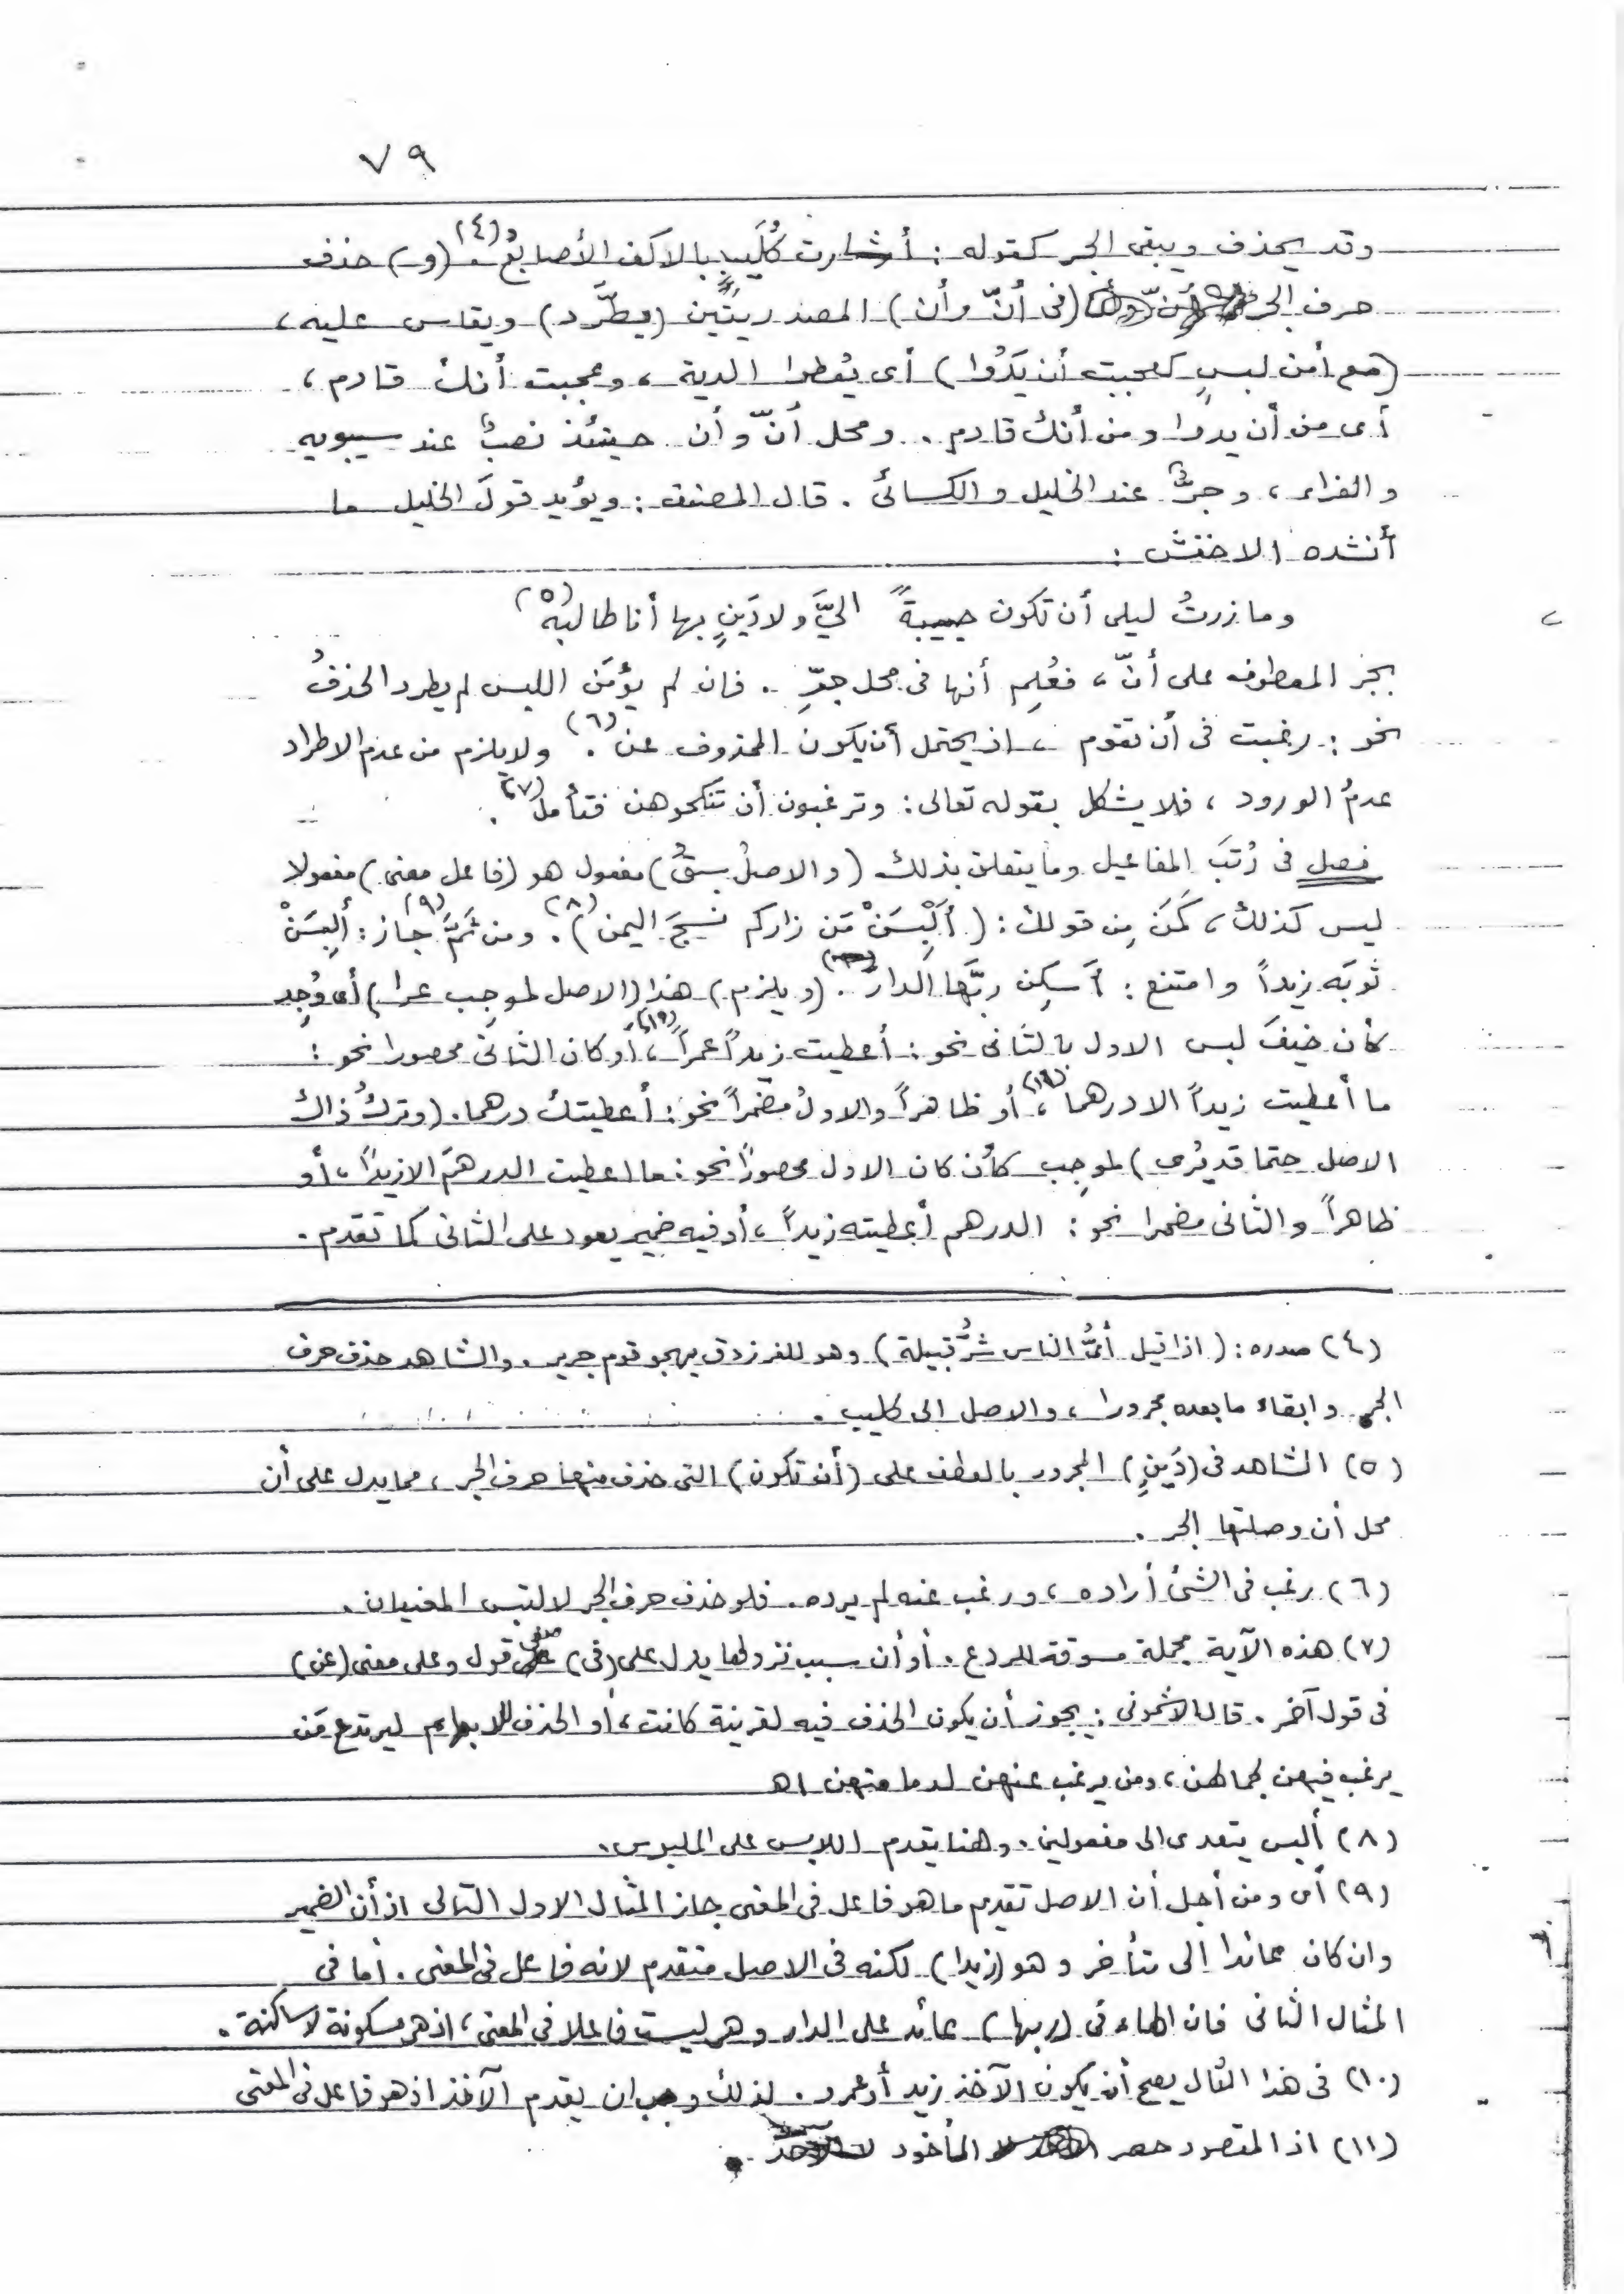 ٧٩
وقد يحذف ويبقى الجر كقوله : أشارت كُلَيبٍ بالاكف الأصابعُ (٤). (و) حذف
حرف الجر (فى أنّ وأن) المصدريتَين (يطَّرد) ويقاس عليه،
(مع أمن لبسٍ كعجبت أن يَدُوا) أى يُعطوا الدية ، وعجبت أنك قادم ،
أى من أن يدوا ومن أنك قادم . ومحل أنّ وأن حينئذ نصبٌ عند سيبويه
والفراء ، وجرٌّ عند الخليل والكسائى . قال المصنف : ويؤيد قولَ الخليل ما
أنشده الاخفش :
وما زرتُ ليلى أن تكون حبيبةً الىَّ ولا دَينٍ بها أنا طالبه (٥)
بجر المعطوف على أنّ ، فعُلِم أنها فى محل جرٍّ . فان لم يؤمَن اللبس لم يطرد الحذفُ
نحو : رغبت فى أن تقوم ، اذ يحتمل أن يكون المحذوف عن (٦). ولا يلزم من عدم الاطراد
عدمُ الورود ، فلا يشكل بقوله تعالى : وترغبون أن تنكحوهن فتأمل (٧).
فصل فى رُتبَ المفاعيل وما يتعلق بذلك (والاصلُ سبقُ) مفعول هو (فاعل معنى) مفعولا
ليس كذلك ، كَمَن مِن قولك : (أَلْبِسَنْ مَن زاركم نسجَ اليمن) (٨). ومن ثَمَّ (٩) جاز : ألبِسَنْ
ثوبَه زيداً وامتنع : أسكِن ربَّها الدار . (ويلزم) هذا (الاصل لموجِب عرا) أى وُجِد
كأن خيفَ لبس الاول بالثانى نحو : أعطيت زيداً عمراً (١٠)، أو كان الثانى محصورا نحو :
ما أعطيت زيداً الا درهما (١١)، أو ظاهراً والاولُ مضمراً نحو : أعطيتك درهما . (وتركُ ذاك
الاصل حتما قد يُرى) لموجِب كأن كان الاول محصوراً نحو : ما اعطيت الدرهمَ الا زيداً ، أو
ظاهراً والثانى مضمرا نحو : الدرهم أعطيته زيداً ، أو فيه ضمير يعود على الثانى كما تقدم .
(٤) صدره : (اذا قيل أىُّ الناس شرُّ قبيلة) وهو للفرزدق يهجو قوم جرير . والشاهد حذف حرف
الجر وابقاء ما بعده مجرورا ، والاصل الى كليب .
(٥) الشاهد فى (دَينٍ) المجرور بالعطف على (أن تكون) التى حذف منها حرف الجر ، مما يدل على أن
محل أن وصلتها الجر .
(٦) رغب فى الشئ أراده ، ورغب عنه لم يرده . فلو حذف حرف الجر لالتبس المعنيان .
(٧) هذه الآية مجملة مسوقة للردع . أو أن سبب نزولها يدل على (فى) فى قول وعلى معنى (عن)
فى قول آخر . قال الاشمونى : يجوز أن يكون الحذف فيه لقرينة كانت ، أو الحذف للابهام ليرتدع مَن
يرغب فيهن لجمالهن ، ومن يرغب عنهن لدمامتهن اهـ
(٨) ألبس يتعدى الى مفعولين . وهنا يقدم اللابس على الملبوس .
(٩) أى ومن أجل أن الاصل تقديم ما هو فاعل فى المعنى جاز المثال الاول التالى اذ أن الضمير
وان كان عائدا الى متأخر وهو (زيدا) لكنه فى الاصل متقدم لانه فاعل فى المعنى . أما فى
المثال الثانى فان الهاء فى (ربها) عائد على الدار وهى ليست فاعلا فى المعنى ، اذ هى مسكونة لا ساكنة .
(١٠) فى هذا المثال يصح أن يكون الآخذ زيد أو عمرو . لذلك وجب ان يقدم الآخذ اذ هو فاعل فى المعنى
(١١) اذ المقصود حصر المأخوذ